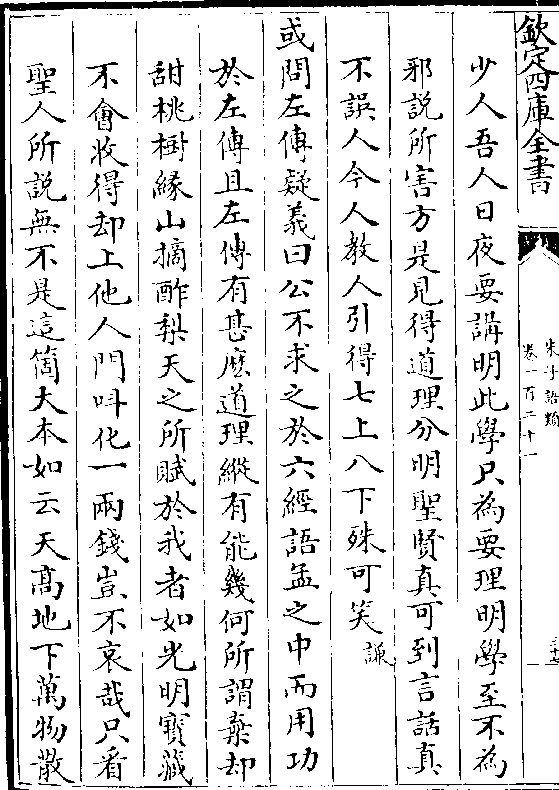 欽定四庫全書
朱子語類
卷一百二十一
少人吾人日夜要講明此學只為要理明學至不為
邪說所害方是見得道理分明聖賢真可到言話真
不誤人今人教人引得七上八下殊可笑謙
或問左傳疑義曰公不求之於六經語孟之中而用功
於左傳且左傳有甚麽道理縱有能幾何所謂棄却
甜桃樹緣山摘酢梨天之所賦於我者如光明寶藏
不會收得却上他人門呌化一兩錢豈不哀哉只看
聖人所說無不是這箇大本如云天髙地下萬物散